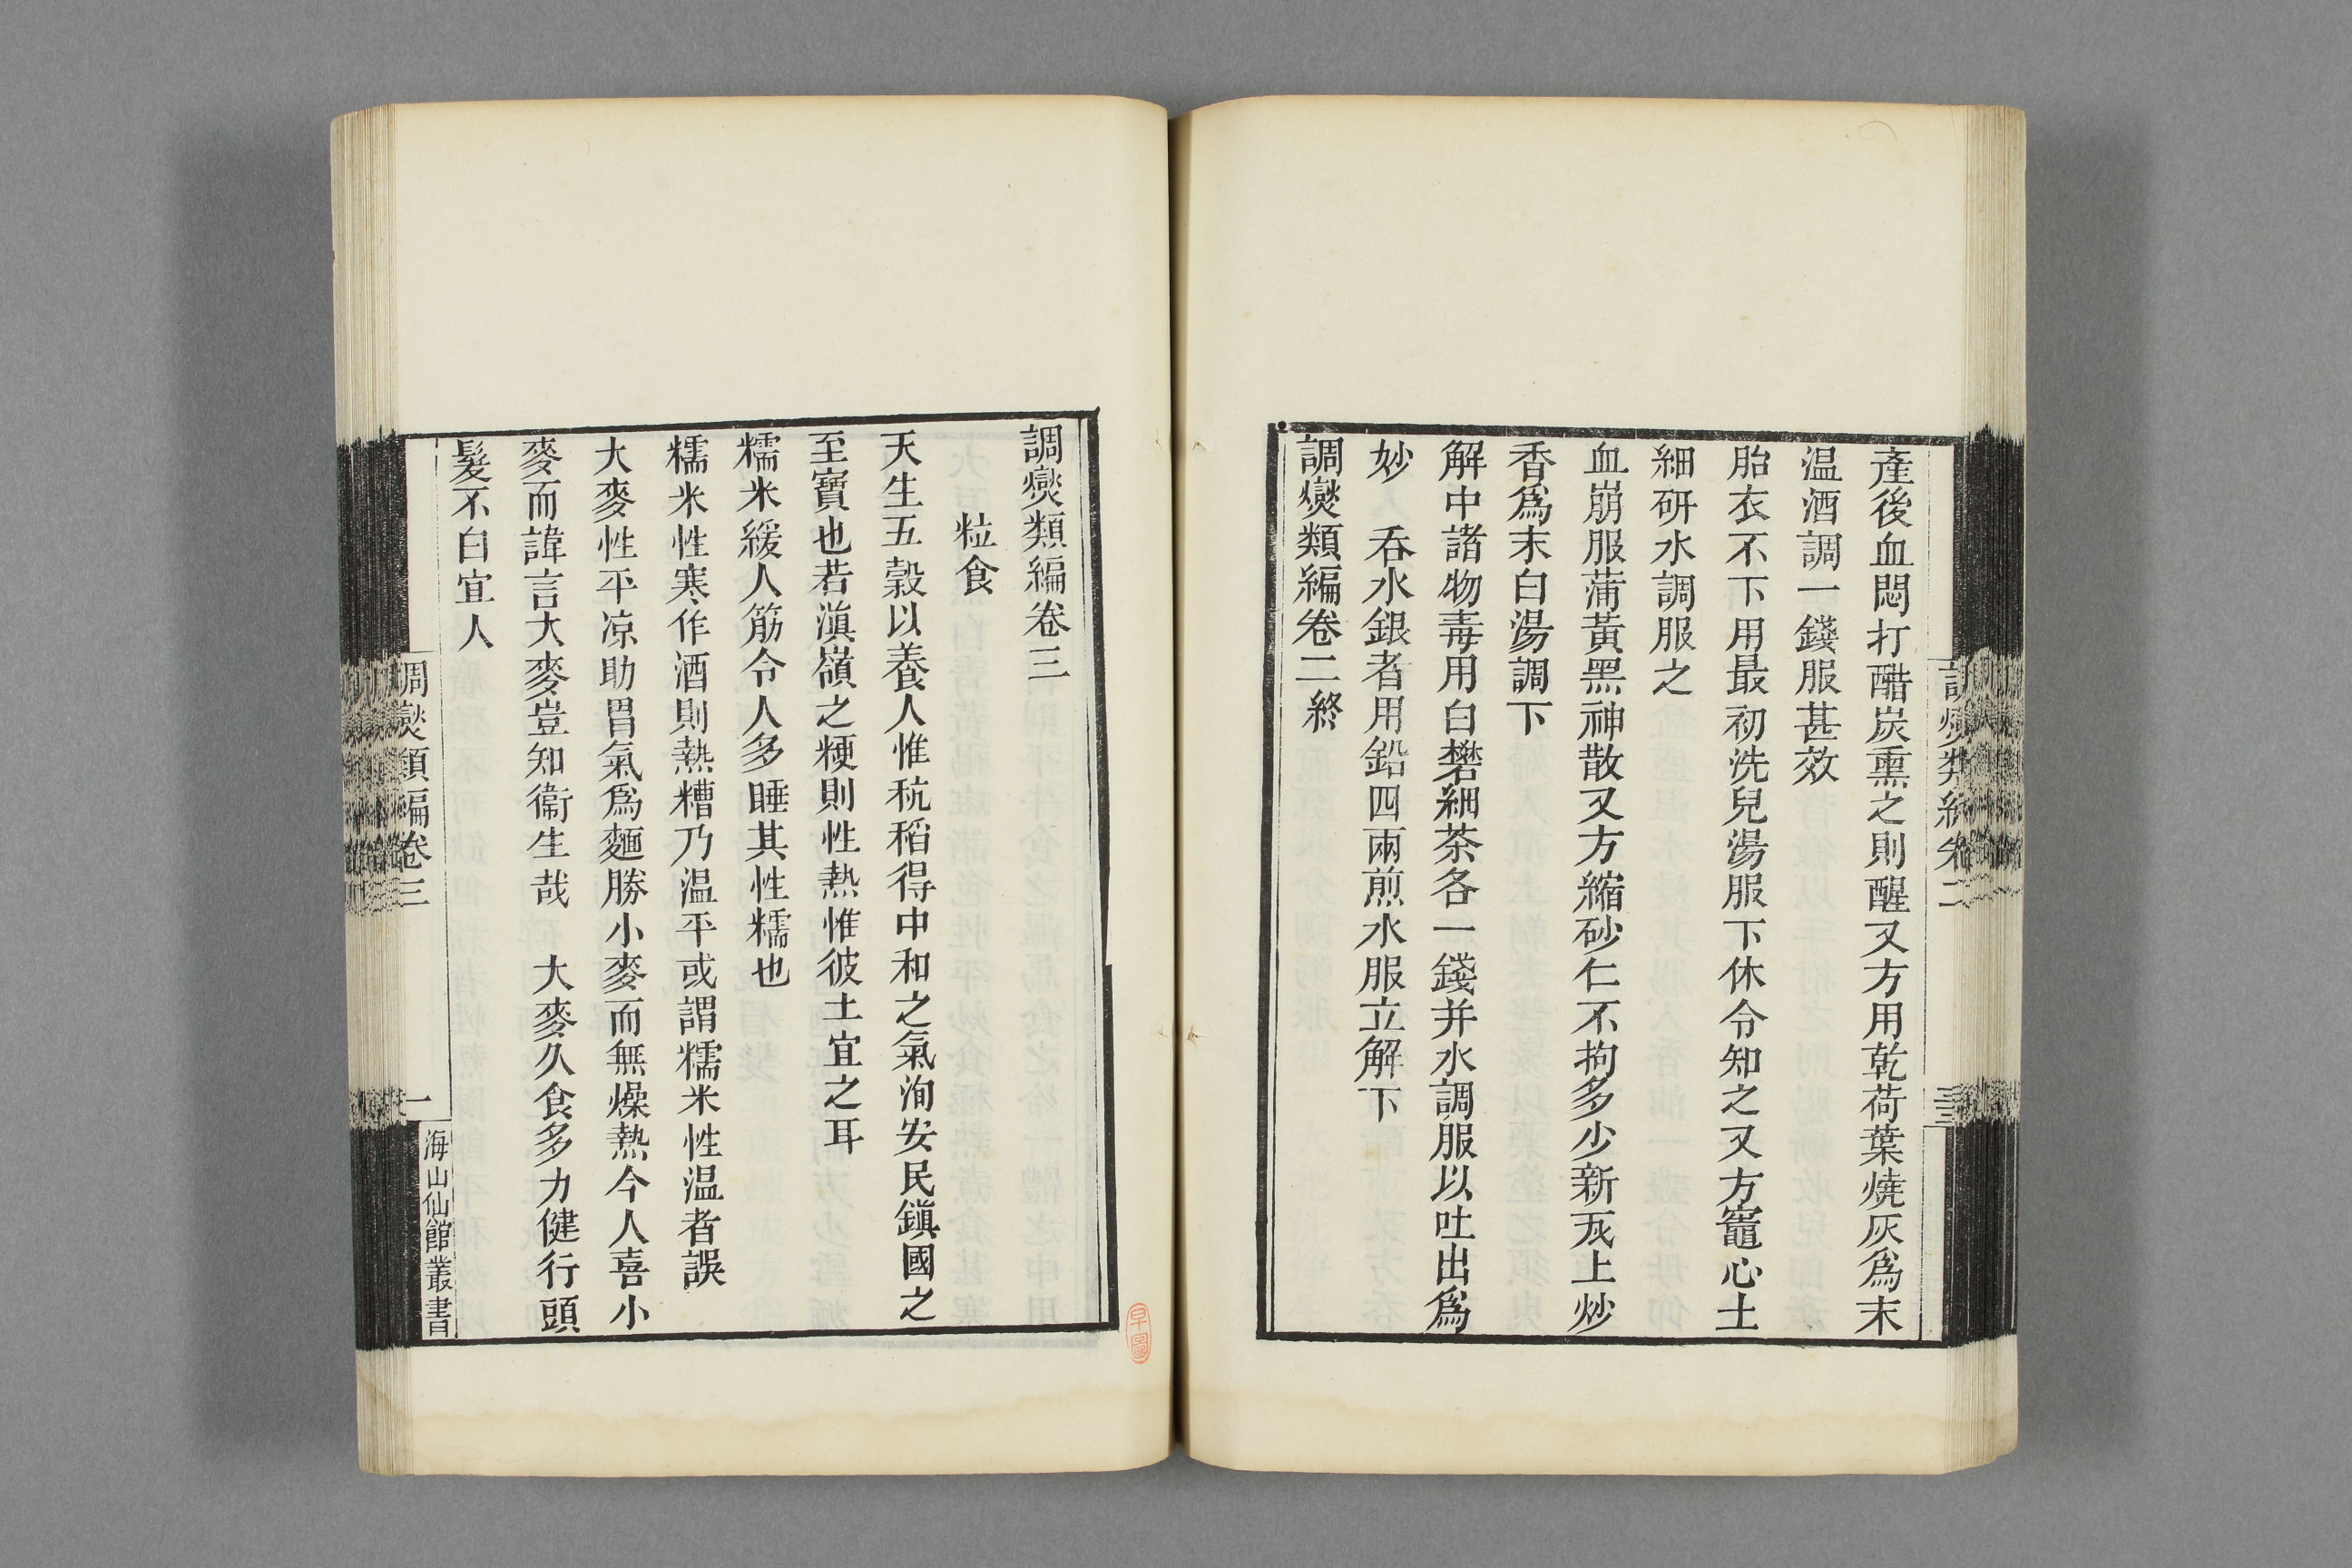 產後血悶打醋炭熏之則醒又方用乾荷葉燒灰爲末
温酒調一錢服甚效
胎衣不下用最初洗兒湯服下休令知之又方竈心土
細研水調服之
血崩服蒲黃黑神散又方縮砂仁不拘多少新瓦上炒
香爲末白湯調下
解中諸物毒用白礬細茶各一錢并水調服以吐出爲
妙　吞水銀者用鉛四兩煎水服立解下
調燮類編卷二終
調燮類編卷三
粒食
天生五穀以養人惟秔稻得中和之氣洵安民鎭國之
至寶也若滇嶺之粳則性熱惟彼土宜之耳
糯米緩人筋令人多睡其性糯也
糯米性寒作酒則熱糟乃温平或謂糯米性温者誤
大麥性平凉助胃氣爲麵勝小麥而無燥熱今人喜小
麥而諱言大麥豈知衞生哉　大麥久食多力健行頭
髮不白宜人
調燮類編卷三
一
海山仙館叢書